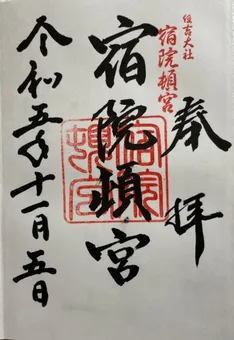 奉拝
住吉大社
宿院頓宮
宿院頓宮
宿院頓宮
令和五年十一月五日